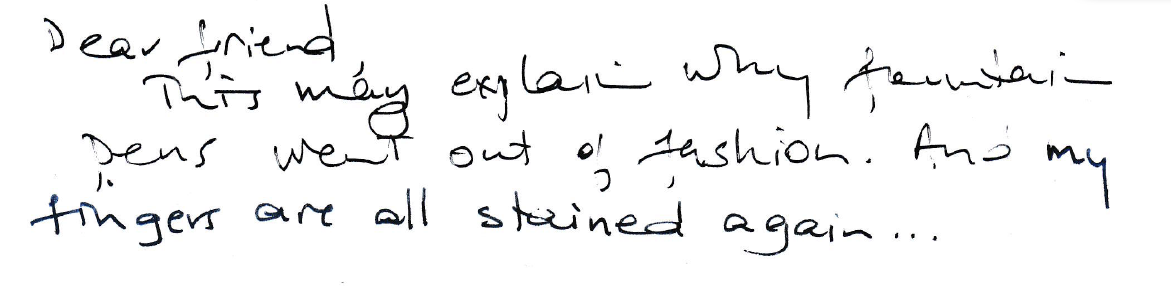 Dear friend,
This may explain why fountain
pens went out of fashion. And my
fingers are all stained again...